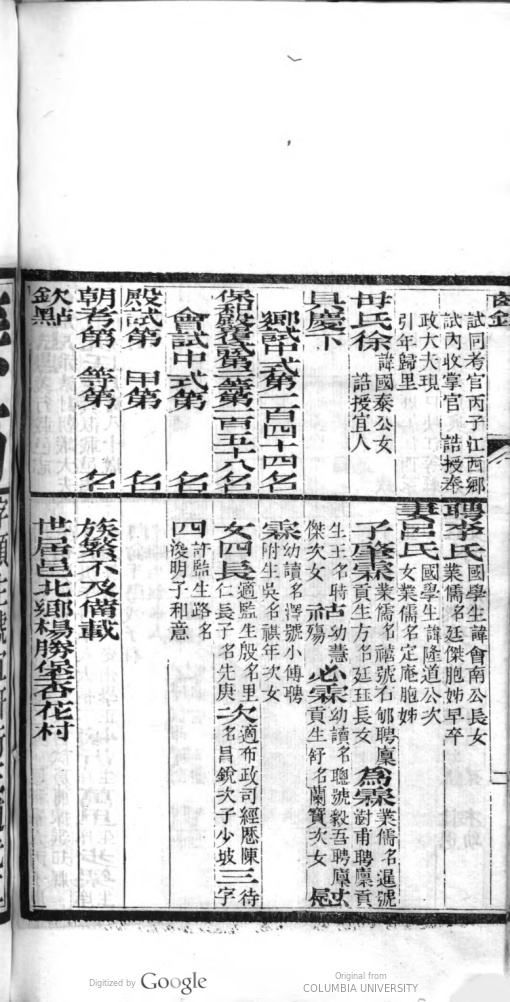 試同考官丙子江西鄉
試內收掌官　誥授奉
政大夫現
引年歸里
母氏徐諱國泰公女
誥授宜人
具慶下
鄉試中式第一百四十四名
保和殿覆試第三等第一百五十八名
會試中式第　名
殿試第　甲第　名
朝考第　等第　名
欽點
聘李氏國學生諱會南公長女
業儒名廷傑胞姊早卒
妻呂氏國學生諱隆道公次
女業儒名定庵胞姊
子肇霖業儒名
號石邨聘廩
貢生方名廷玨長女
為霖業儒名暹號
澍甫聘廩貢
生王名時
傑次女
祜幼慧
殤
必霖幼讀名聰號毅吾聘廩
貢生舒名蘭寶次女
長
霖幼讀名澤號小傳聘
附生吳名祺年次女
女四長適監生殷名里
仁長子名先庚
次適布政司經歷陳
名昌銳次子少坡
三待
字
四許監生路名
渙明子和意
族繁不及備載
世居邑北鄉楊勝堡杏花村
二
Digitized by Google
Original from
COLUMBIA UNIVERSITY